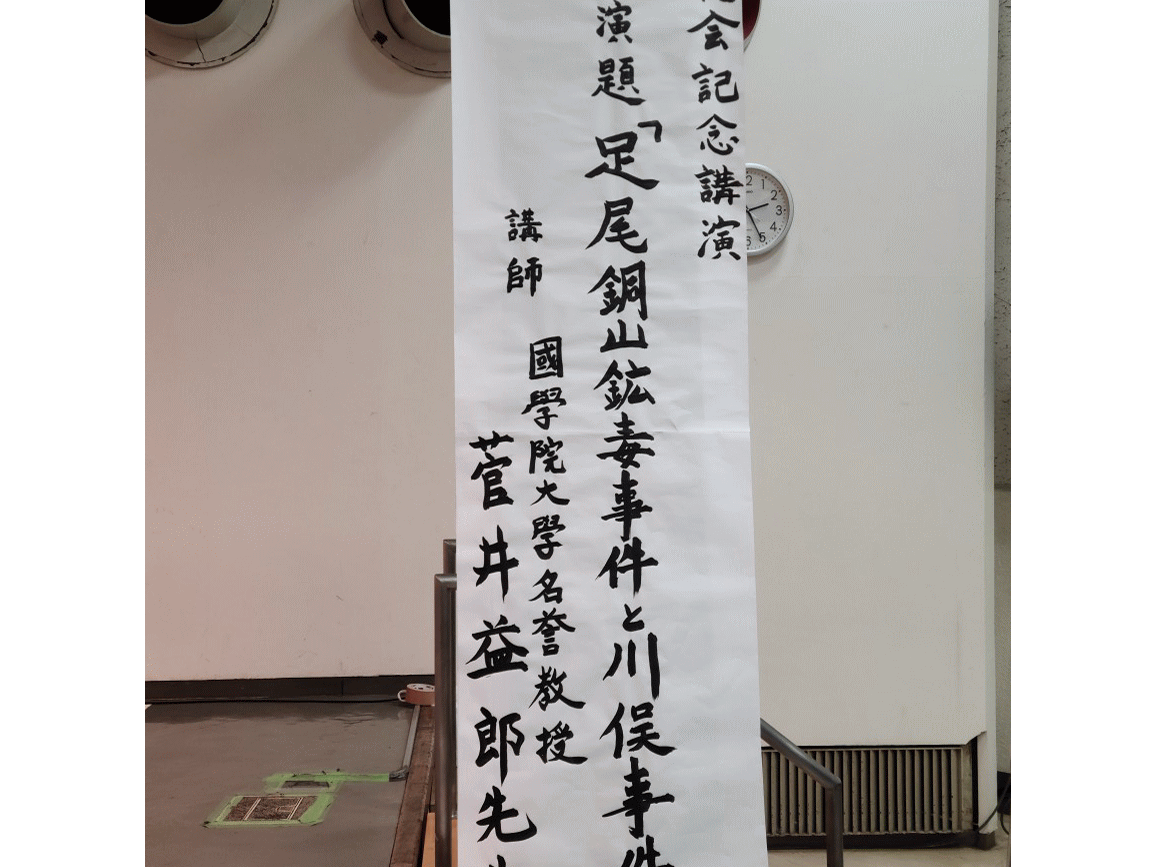 会記念講演
演題「足尾銅山鉱毒事件と川俣事件
講師
國學院大學名誉教授
菅井益郎先
12
1
2
3
4
5
6